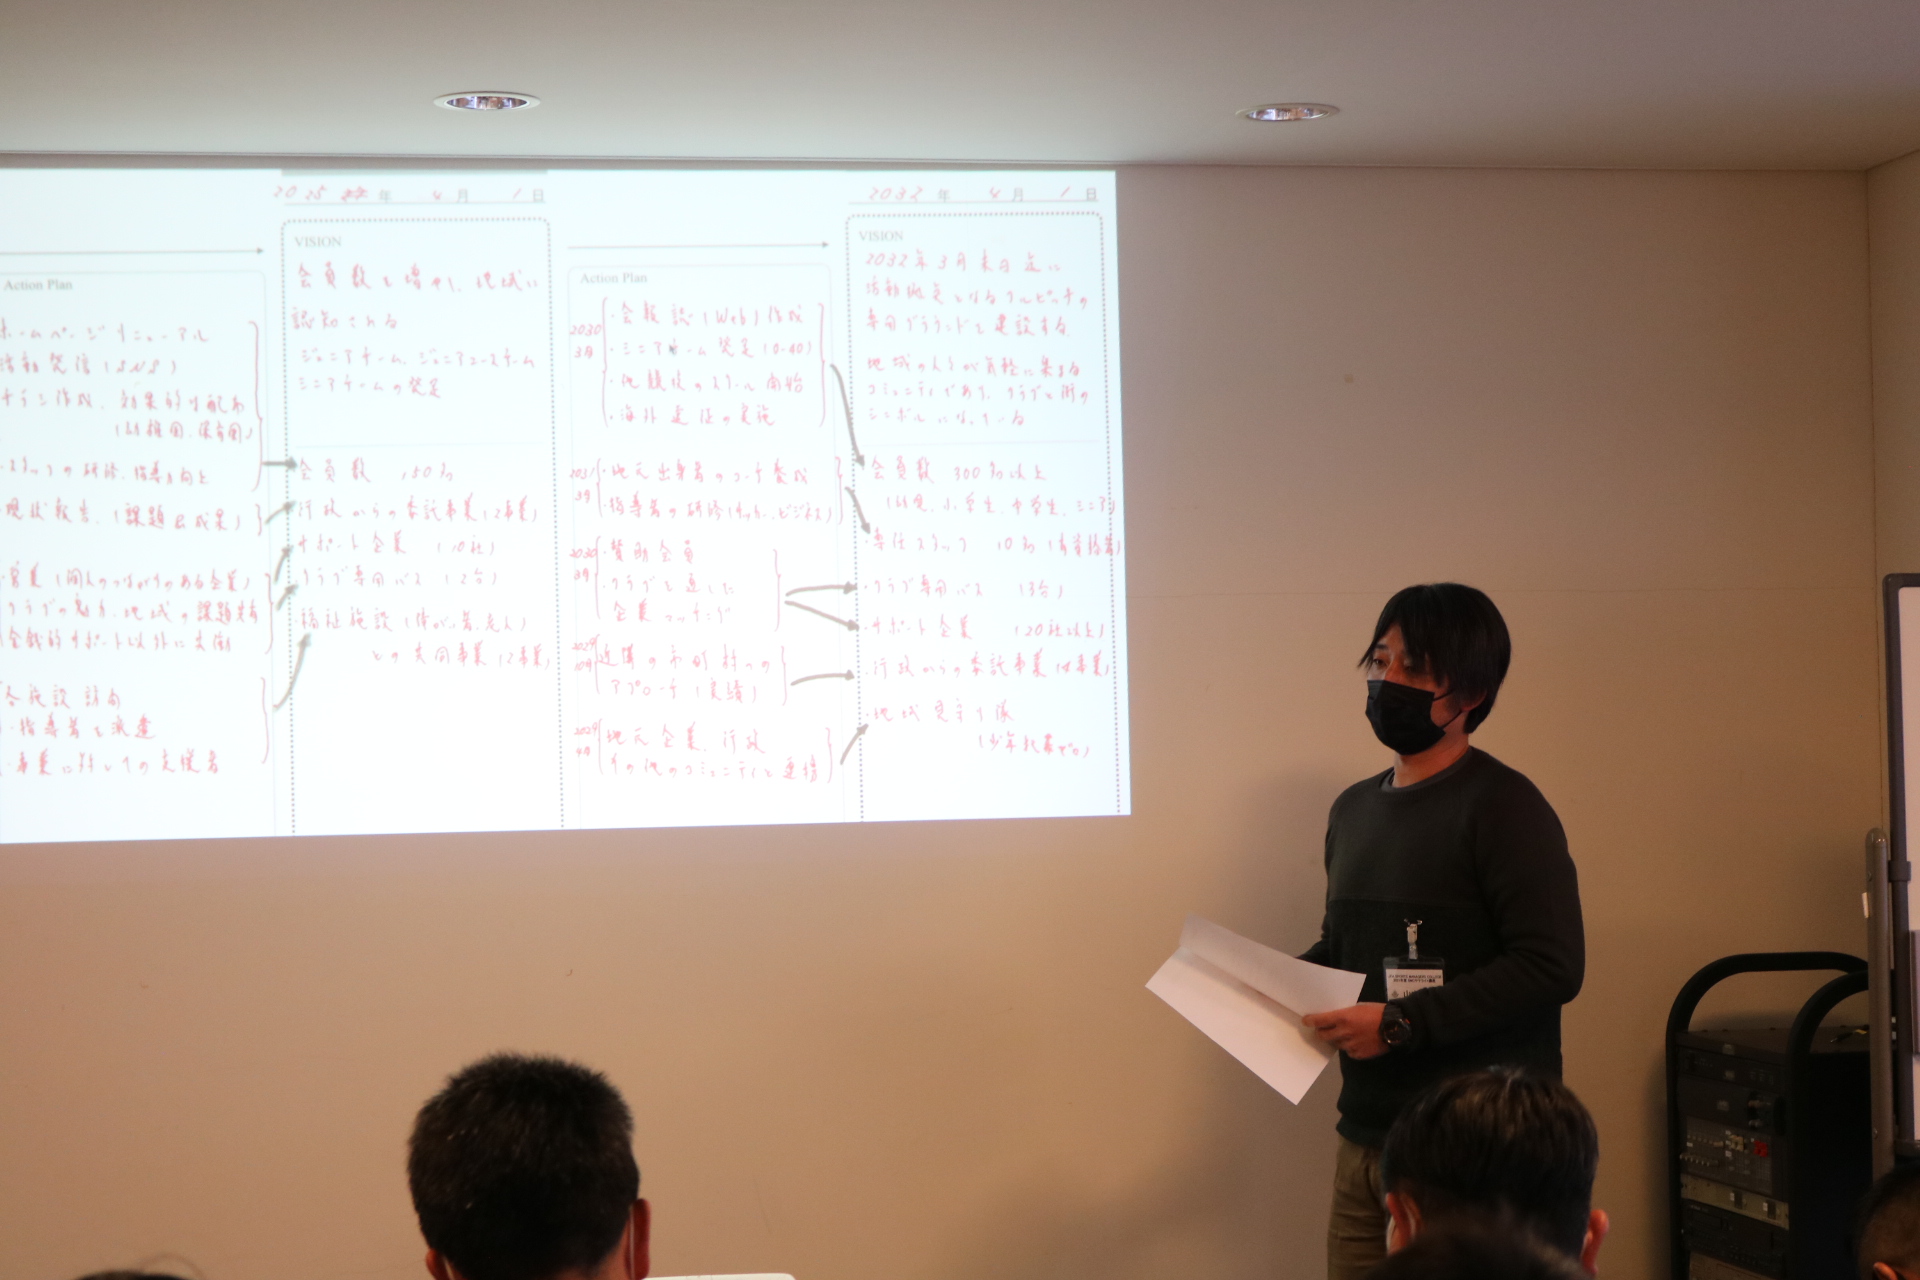 Action Plan
ホームページリニューアル
活動発信(SNS)
チラシ作成、効果的な配布
(幼稚園、保育園)
スタッフの研修、指導力向上
現状報告、(課題と成果)
営業(個人のつながりのある企業)
クラブの魅力、地域の課題共有
金銭的サポート以外に支働
各施設訪問
・指導者を派遣
・事業に対しての支援者
2025 年 4月 1日
VISION
会員数を増やし、地域に
認知される
ジュニアチーム、ジュニアユースチーム
シニアチームの発足
会員数 150名
行政からの委託事業(2事業)
サポート企業 (10社)
クラブ専用バス (2台)
福祉施設(障がい者、老人)
との共同事業(2事業)
Action Plan
2030
3月
・会報誌(Web)作成
・シニアチーム発足(0-40)
・他競技のスクール開始
・海外遠征の実施
2031
3月
・地元出身者のコーチ養成
・指導者の研修(サッカー、ビジネス)
2030
3月
・賛助会員
・クラブを通した
企業マッチング
2029
10月
近隣の市町村への
アプローチ(実績)
2029
4月
地元企業、行政
その他のコミュニティと連携
2032年 4月 1日
VISION
2032年3月末日迄に
活動拠点となるフルピッチの
専用グラウンドを建設する
地域の人々が気軽に集まる
コミュニティであり、クラブと街の
シンボルになっている
会員数 300名以上
(幼児、小学生、中学生、シニア)
・専任スタッフ 10名(有資格者)
・クラブ専用バス (3台)
・サポート企業 (20社以上)
・行政からの委託事業(4事業)
・地域見守り隊
(少年犯罪ゼロ)
山